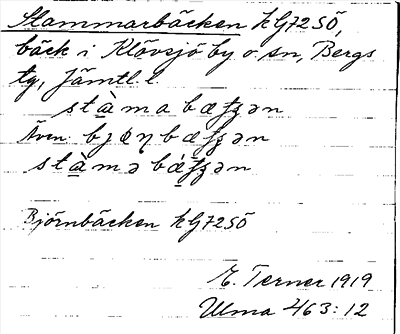 Stammarbäcken kG72SÖ,
bäck i Klövsjö by o. sn, Bergs
tg, Jämtl. l.
stàmabæʃʒən
Även. bjǿŋbæʃʒən
stàməbǽʃʒən
Björnbäcken kG72SÖ
E. Terner 1919
Ulma 463:12